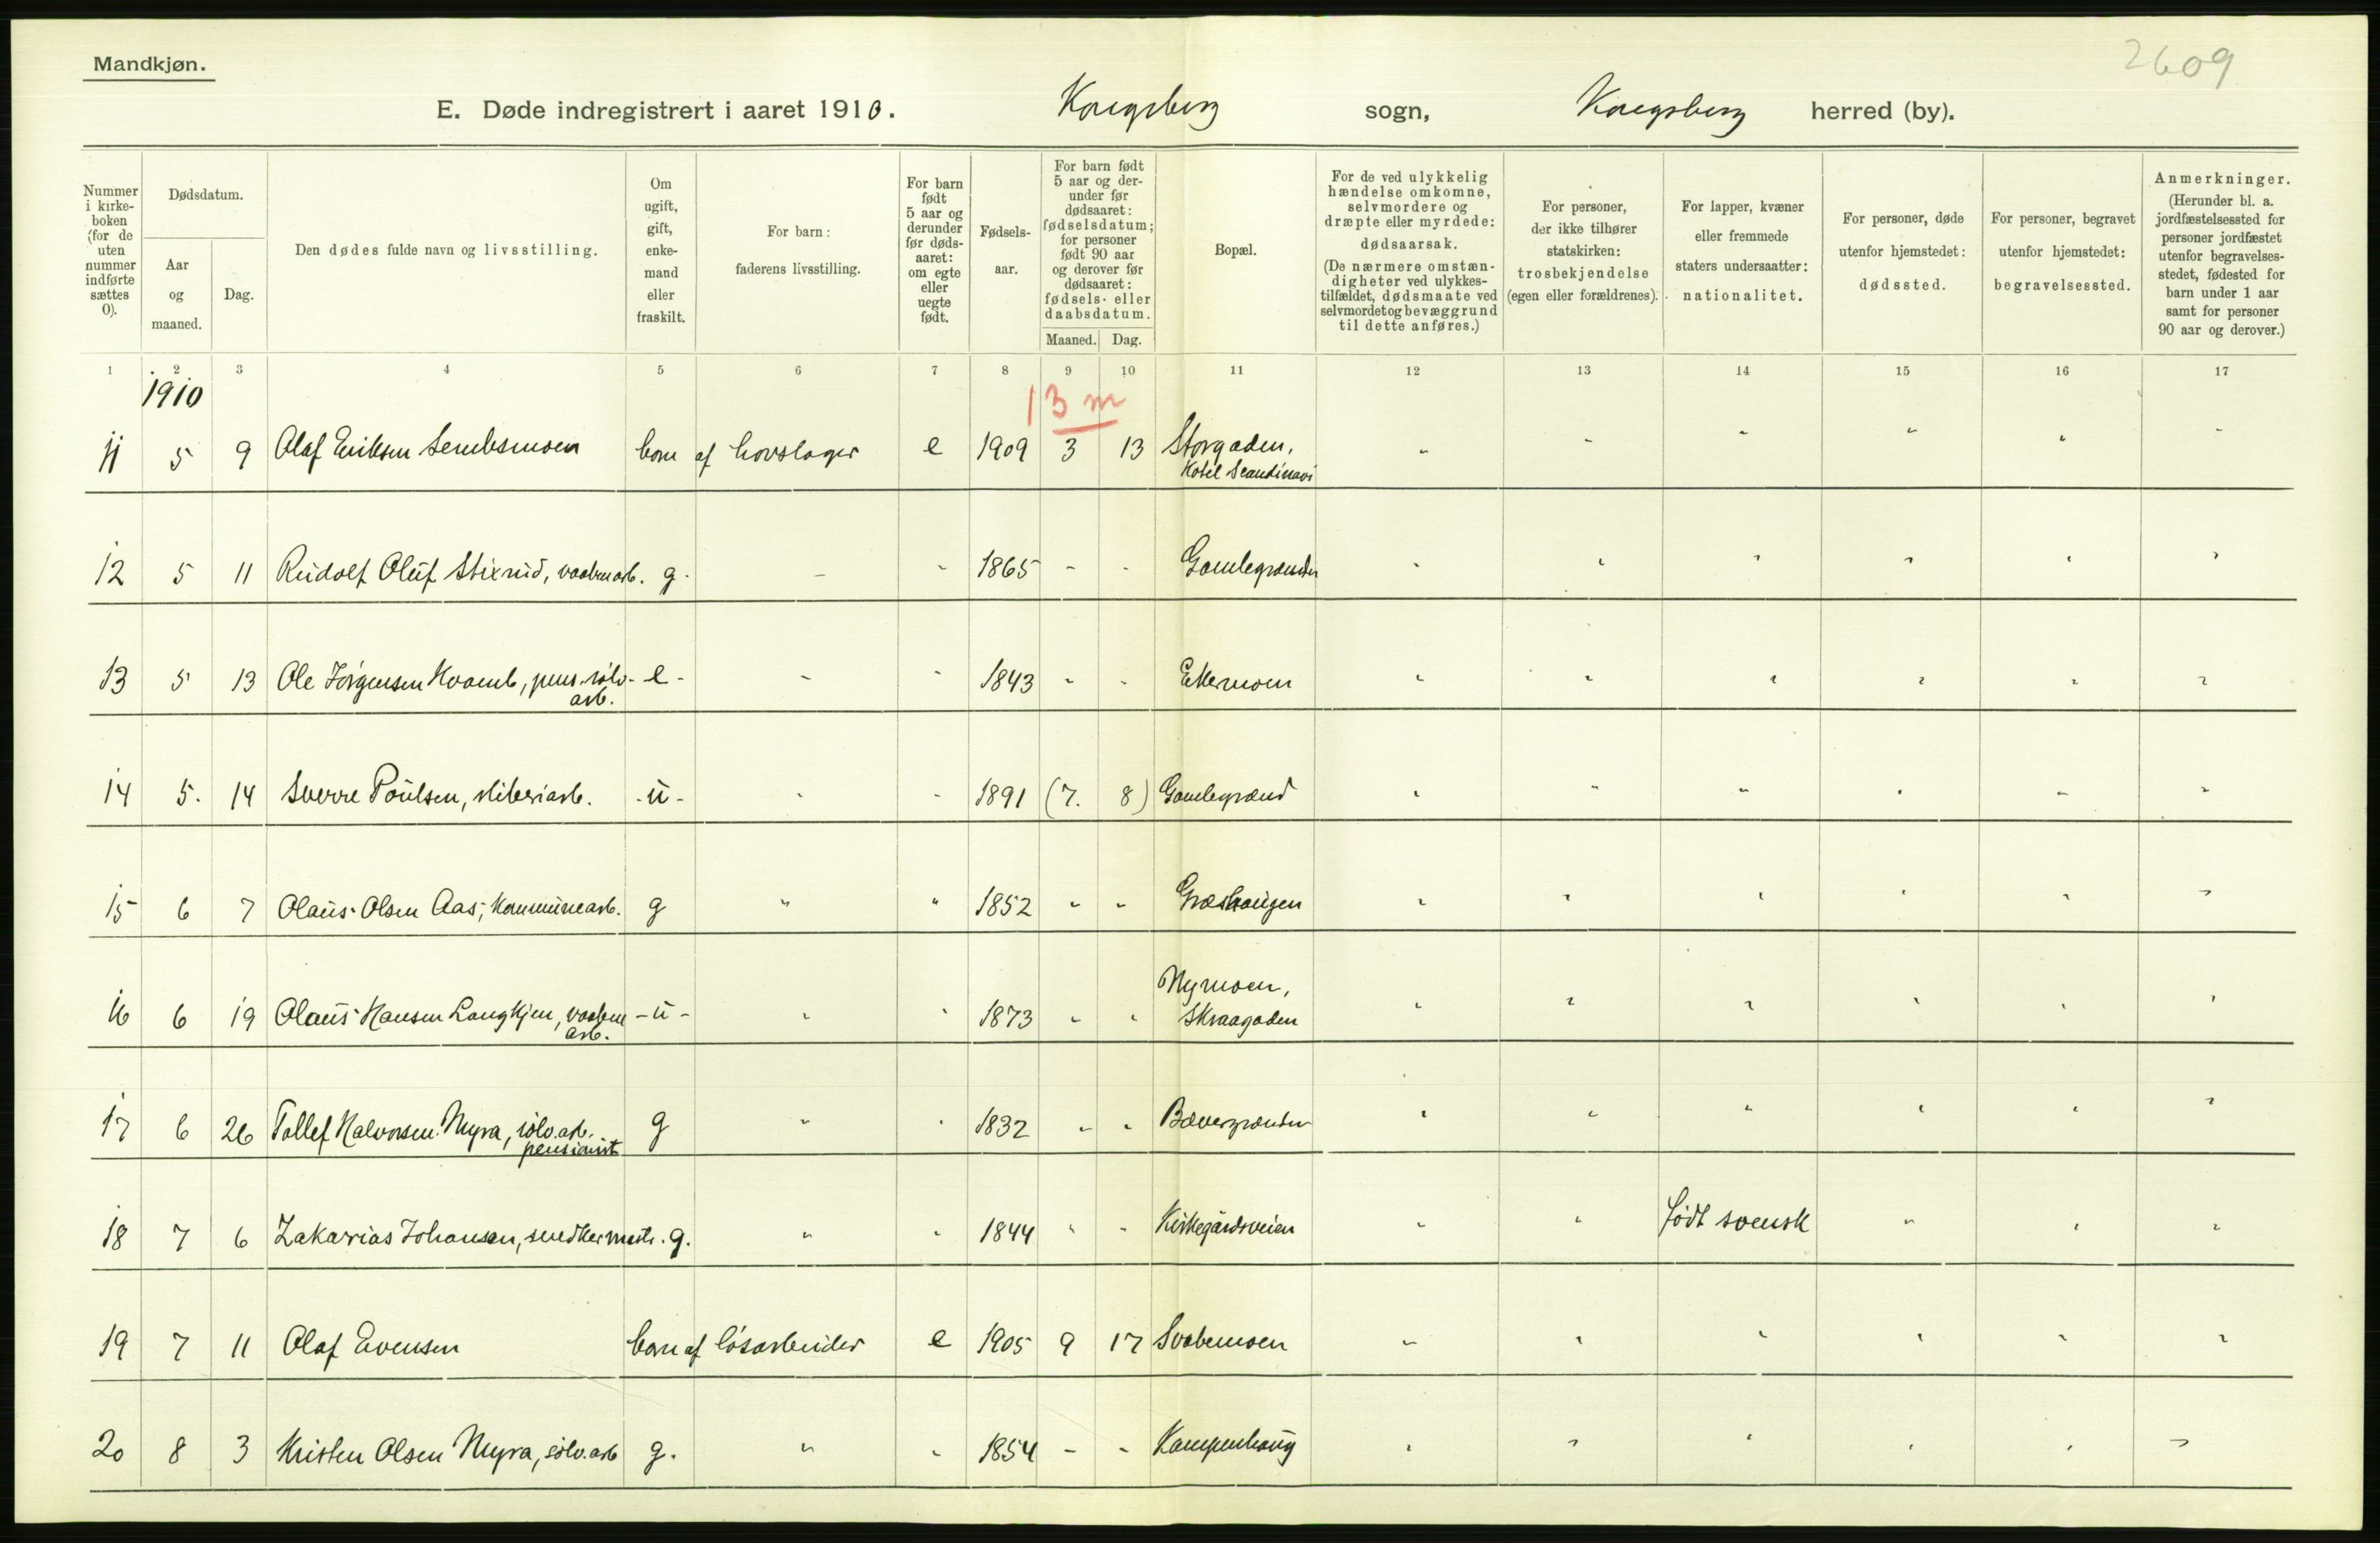 Mandkjøn.
2609
E. Døde indregistrert i aaret 1910. Kongsberg sogn, Kongsberg herred (by).
Nummer i kirkeboken (for de uten nummer indførte sættes 0).
Dødsdatum.
Aar og maaned.
Dag.
Den dødes fulde navn og livsstilling.
Om ugift, gift, enkemand eller fraskilt.
For barn: faderens livsstilling.
For barn født 5 aar og derunder før dødsaaret: om egte eller uegte født.
Fødselsaar.
For barn født 5 aar og derunder før dødsaaret: fødselsdatum; for personer født 90 aar og derover før dødsaaret: fødsels- eller daabsdatum.
Maaned. Dag.
Bopæl.
For de ved ulykkelig hændelse omkomne, selvmordere og dræpte eller myrdede: dødsaarsak. (De nærmere omstændigheter ved ulykkestilfældet, dødsmaate ved selvmordet og bevæggrund til dette anføres.)
For personer, der ikke tilhører statskirken: trosbekjendelse (egen eller forældrenes).
For lapper, kvæner eller fremmede staters undersaatter: nationalitet.
For personer, døde utenfor hjemstedet: dødssted.
For personer, begravet utenfor hjemstedet: begravelsessted.
Anmerkninger. (Herunder bl. a. jordfæstelsessted for personer jordfæstet utenfor begravelsesstedet, fødested for barn under 1 aar samt for personer 90 aar og derover.)
1 2 3 4 5 6 7 8 9 10 11 12 13 14 15 16 17
1910
13 m
11 5 9 Olaf Eriksen barn af hovslager e 1909 3 13 Storgaden,
Hotel Scandinavi
12 5 11 Rudolf Oluf Stixrud, vaabenarb. g. - - 1865 - - Gamlegrænden
13 5 13 Ole Jørgensen Kvamb, pens. sølv- - e - - - 1843 - - Ekermoen
arb.
14 5. 14 Sverre Poulsen, sliberiarb. - u - - - 1891 (7. 8) Gamlegrænd
15 6 7 Olaus Olsen Aas, kommunearb. g " " 1852 " " Græshaugen
Nymoen,
16 6 19 Olaus Hansen Langkjen, vaaben - u - " " 1873 " " Skraagaden
arb.
17 6 26 Tollef Halvorsen Myra, sølv.arb. g " " 1832 " " Bævergrænden
pensionist
18 7 6 Zakarias Johansen, snedkermestr. g. " " 1844 " " Kirkegårdsveien " " født svensk
19 7 11 Olaf Evensen barn af løsarbeider e 1905 9 17 Svabemoen
20 8 3 Kristen Olsen Myra, sølv.arb g. " " 1854 - - Kampenhaug